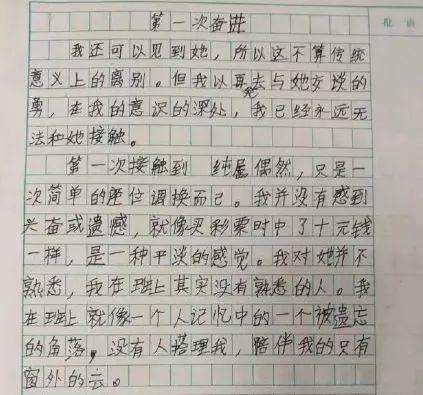 批语
第一次奋进
我还可以见到她，所以这不算传统
意义上的离别。但我以再无去与她交谈的
勇，在我的意识的深处，我已经永远无
法和她接触。
第一次接触到 纯属偶然，只是一
次简单的座位调换而已。我并没有感到
兴奋或遗憾，就像买彩票时中了十元钱
一样，是一种平淡的感觉。我对她并不
熟悉，我在班上其实没有熟悉的人。我
在班上就像一个人记忆中的一个被遗忘
的角落，没有人搭理我，陪伴我的只有
窗外的云。